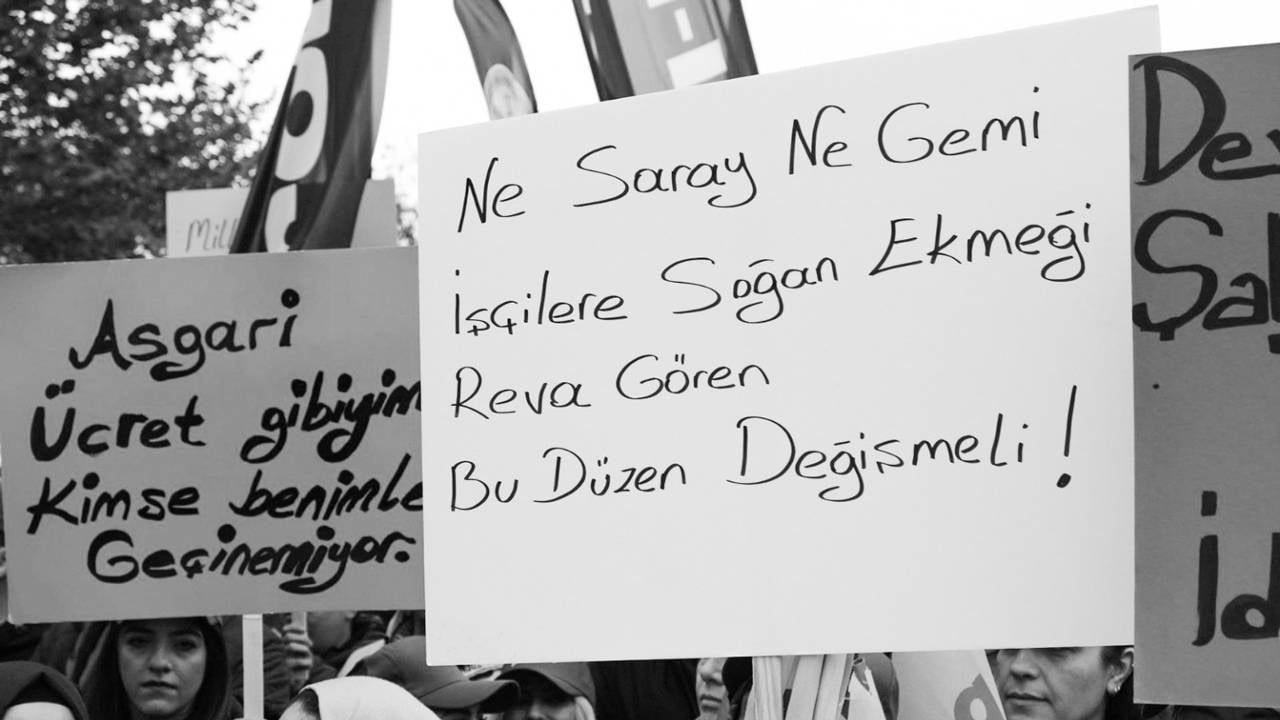 Asgari
Ücret gibiyim
Kimse benimle
Geçinemiyor.
Ne Saray Ne Gemi
İşçilere Soğan Ekmeği
Reva Gören
Bu Düzen Değişmeli !